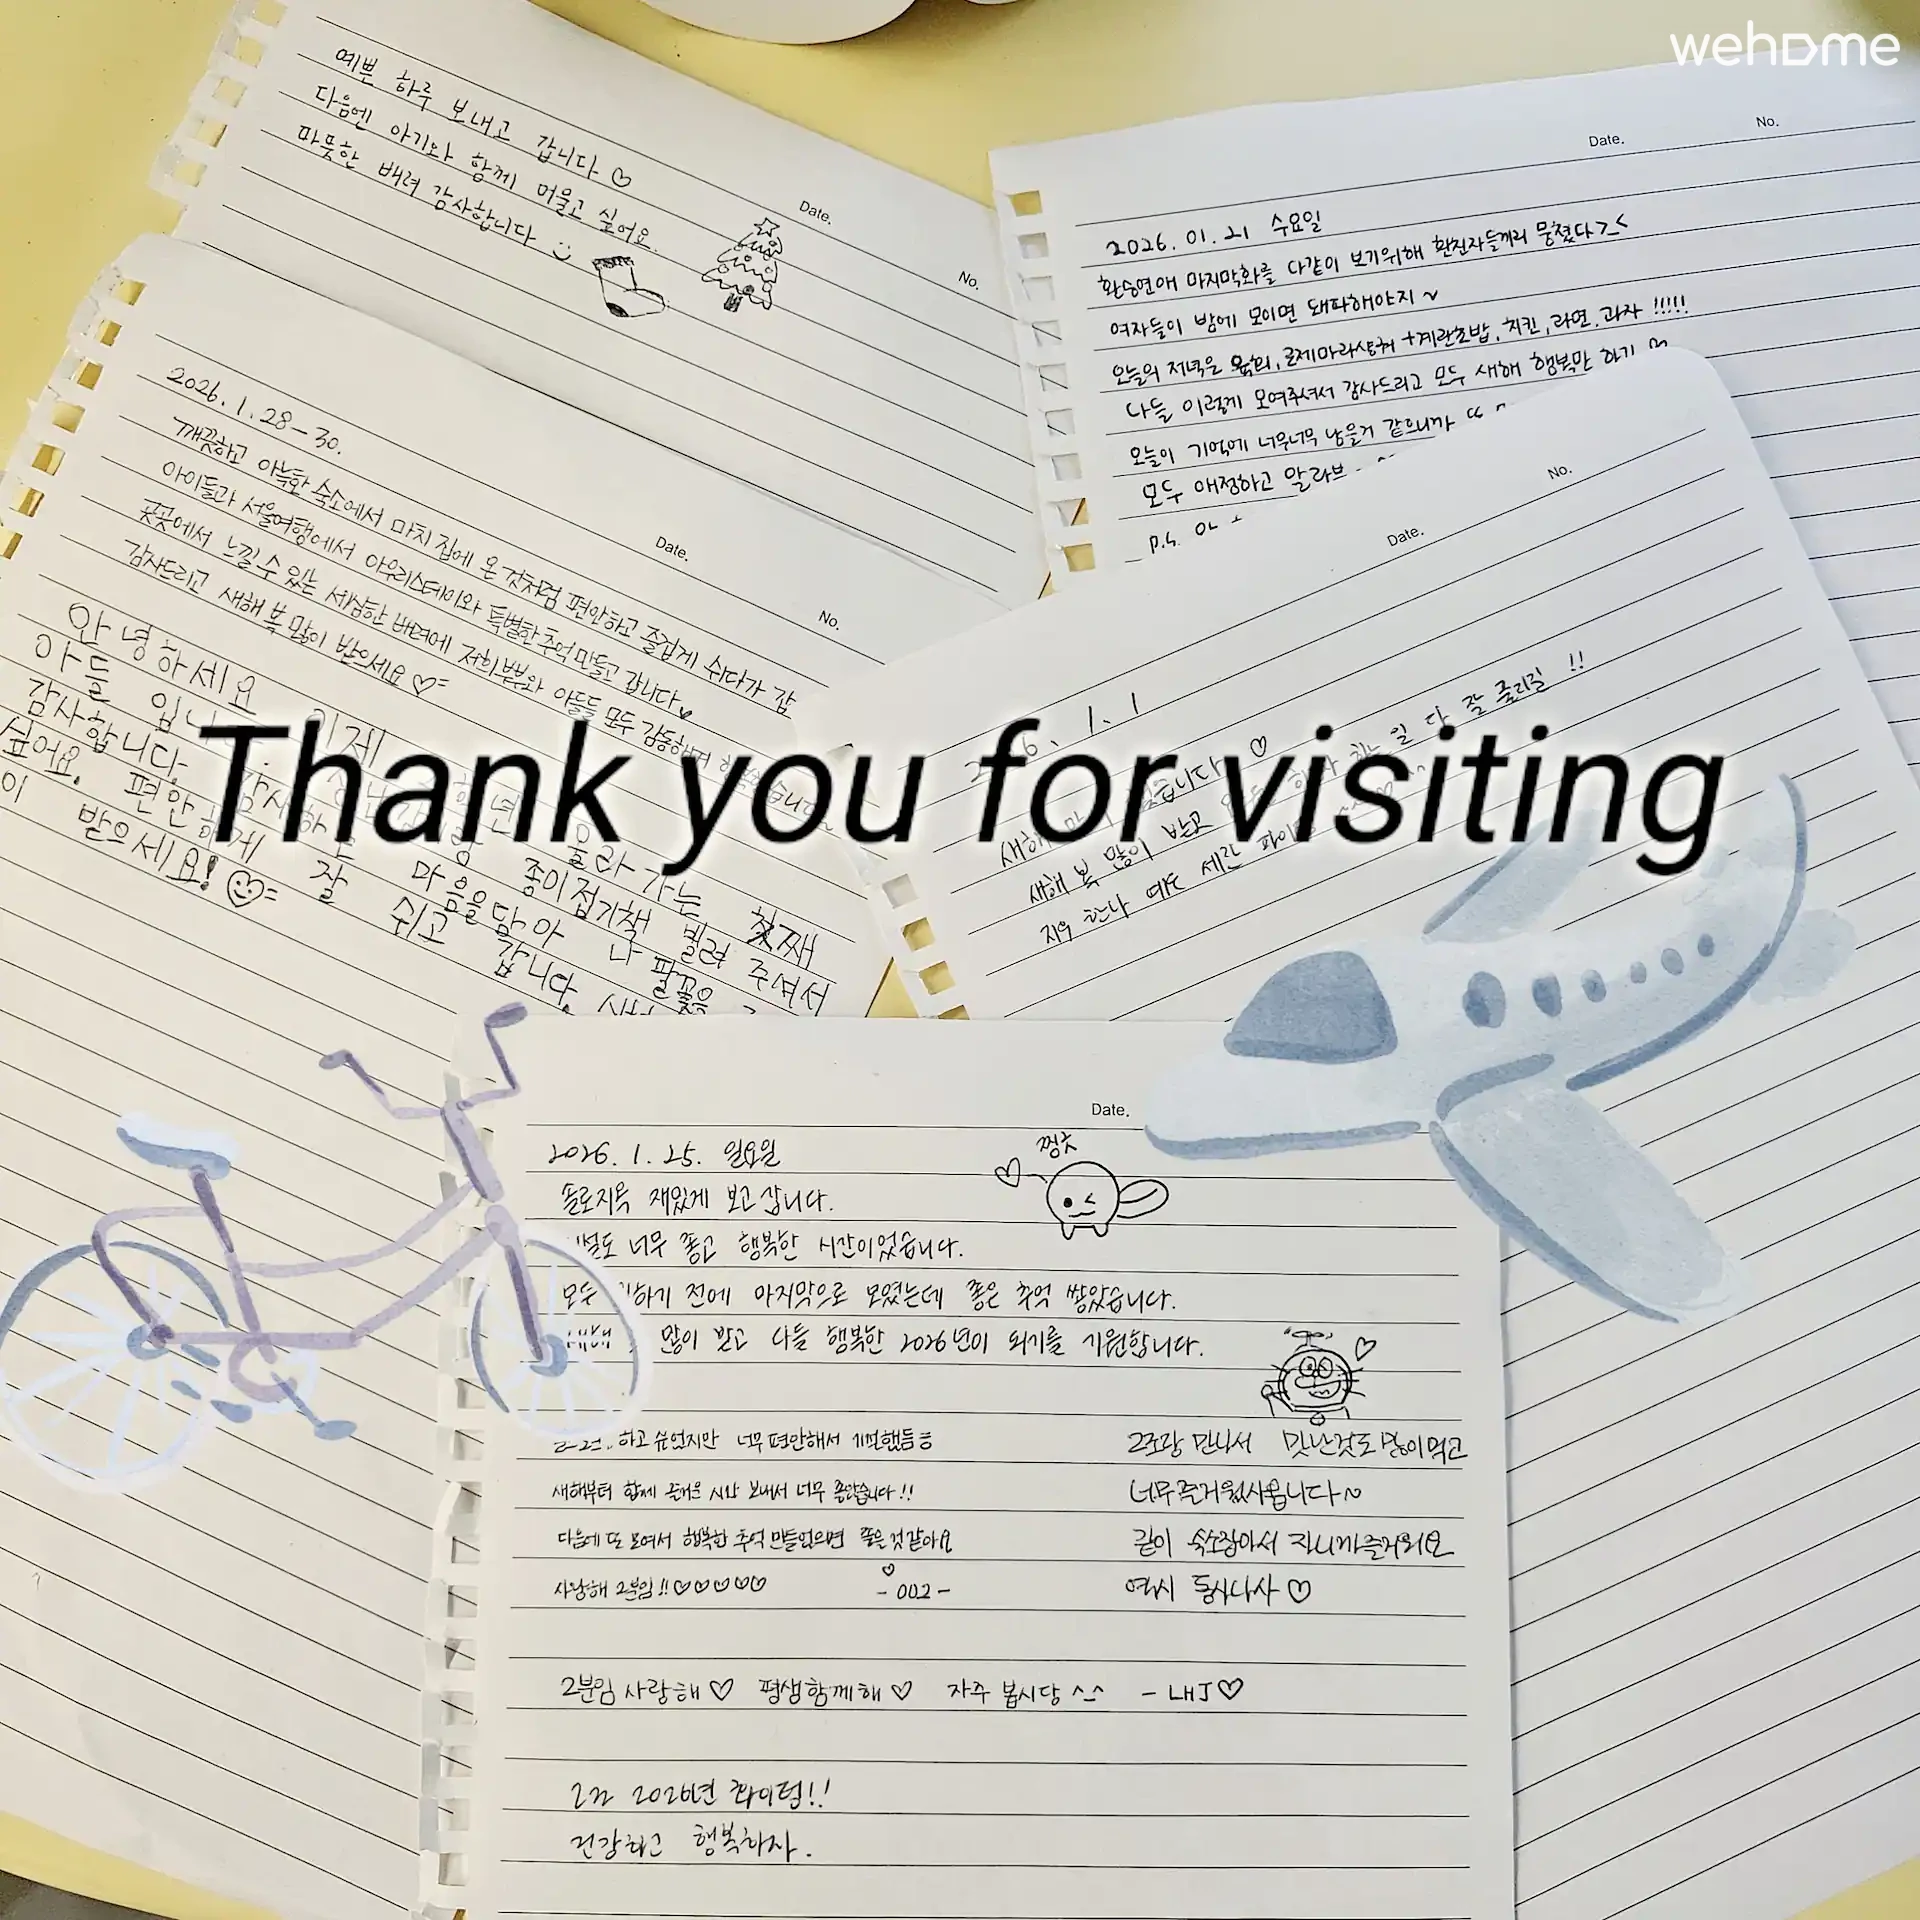 wehome
예쁜 하루 보내고 갑니다♡
다음엔 아기와 함께 머물고 싶어요.
따뜻한 배려 감사합니다
Date.
No.
Date.
No.
2026.01.21 수요일
환승연애 마지막화를 다같이 보기위해 환친자들끼리 뭉쳤다>_<
여자들이 밤에 모이면 돼파해야지~
오늘의 저녁은 육회, 로제마라샹궈+계란초밥, 치킨, 라면, 과자 !!!!!
다들 이렇게 모여주셔서 감사드리고 모두 새해 행복만 하기
오늘이 기억에 너무너무 남을거 같으니까
모두 애정하고 알라브
P.S.
Date.
No.
2026. 1. 28 – 30.
깨끗하고 아늑한 숙소에서 마치 집에 온 것처럼 편안하고 즐겁게 쉬다가 갑
아이들과 서울여행에서 아우리스테이와 특별한 추억 만들고 갑니다.
곳곳에서 느낄 수 있는 세심한 배려에 저희부부와 아들들 모두 감동해서
감사드리고 새해 복 많이 받으세요♡=
안녕하세요 이제 올라가는 첫째
아들 입니다. 종이접기책 빌려 주셔서
감사합니다. 감사하는 마음을 담아 나팔꽃을
싶어요. 편안하게 잘 쉬고 갑니다.
이 받으세요!
Date.
No.
1. 1
새해 ♡
새해 복 많이 받고 하는 일 다 잘 풀리길 !!
지우 한나 예도 세란
Thank you for visiting
Date.
2026. 1. 25. 일요일
솔로지옥 재밌게 보고 갑니다.
너무 좋고 행복한 시간이었습니다.
모두 하기 전에 마지막으로 모였는데 좋은 추억 쌓았습니다.
많이 받고 다들 행복한 2026년이 되기를 기원합니다.
찡긋
하고 싶었지만 너무 편안해서 기절했듬ㅎ
새해부터 함께 즐거운 시간 보내서 너무 좋았습니다!!
다음에 또 모여서 행복한 추억 만들었으면 좋은 것 같아요
사랑해 2분임!!♡♡♡♡♡
- 002 -
2조랑 만나서 맛난것도 많이먹고
너무즐거웠사옵니다~
같이 숙소잡아서 지니까즐거워요
역시 동사나사♡
2분임 사랑해♡ 평생함께해♡ 자주 봅시당^_^ - LHJ♡
2조 2026년 화이팅!!
건강하고 행복하자.